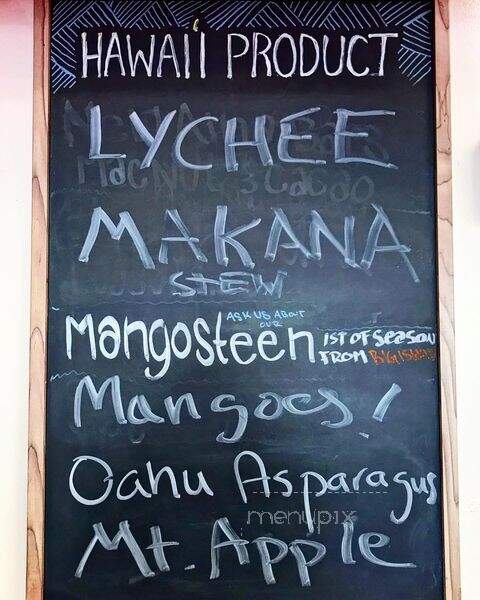 HAWAII PRODUCT
LYCHEE
MAKANA
STEW
ASK US ABOUT
OUR
Mangosteen 1ST OF SEASON
FROM BIG ISLAND
Mangoes !
Oahu Asparagus
menupix
Mt. Apple